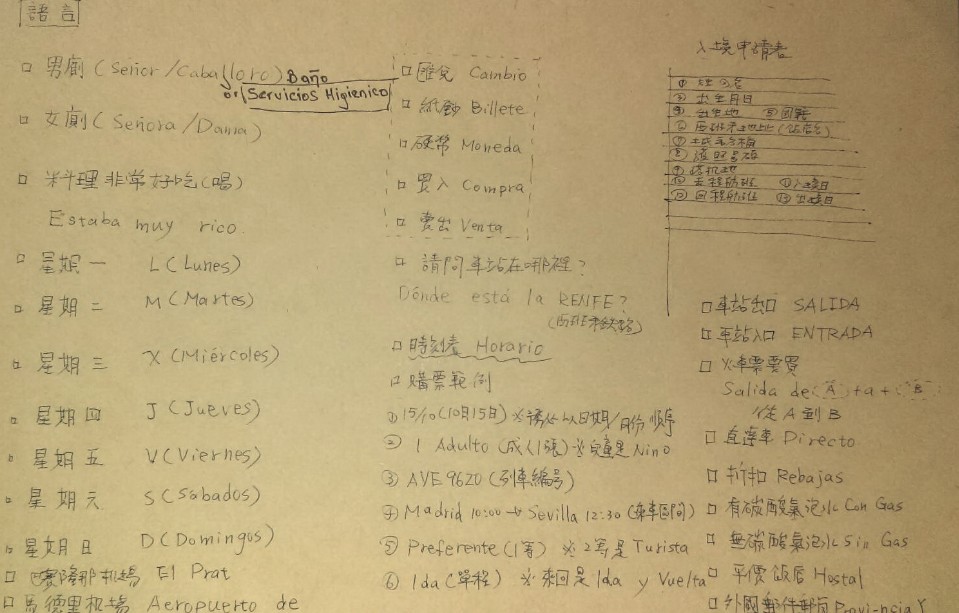 語言
□ 男廁 (Señor/Caballoro) Baño
or Servicios Higienico
□ 女廁 (Señora/Dama)
□ 料理非常好吃(喝)
Estaba muy rico.
□ 星期一 L (Lunes)
□ 星期二 M (Martes)
□ 星期三 X (Miércoles)
□ 星期四 J (Jueves)
□ 星期五 V (Viernes)
□ 星期六 S (Sabados)
□ 星期日 D (Domingos)
□ 巴塞隆那机場 El Prat
□ 馬德里机場 Aeropuerto de
□ 匯兌 Cambio
□ 紙鈔 Billete
□ 硬幣 Moneda
□ 買入 Compra
□ 賣出 Venta
□ 請問車站在哪裡?
Dónde está la RENFE?
(西班牙鉄路)
□ 時刻表 Horario
□ 購票範例
① 15/10 (10月15日) ※請以日期/月份順序
② 1 Adulto (成人1張) ※兒童是 Nino
③ AVE 9620 (列車編号)
④ Madrid 10:00 → Sevilla 12:30 (乘車區間)
⑤ Preferente (1等) ※ 2等是 Turista
⑥ Ida (單程) ※來回是 Ida y Vuelta
入境申請者
① 姓名
② 出生月日
出生地 國籍
西班牙地址(飯店名)
護照号碼
去程航班 入境日
回程航班 出境日
□ 車站出口 SALIDA
□ 車站入口 ENTRADA
□ 火車票要買
Salida de (A) + a + (B)
從 A 到 B
□ 直達車 Directo
□ 折扣 Rebajas
□ 有碳酸氣泡水 Con Gas
□ 無碳酸氣泡水 Sin Gas
□ 平價飯店 Hostal
□ 外國郵件郵局 Provincia Y